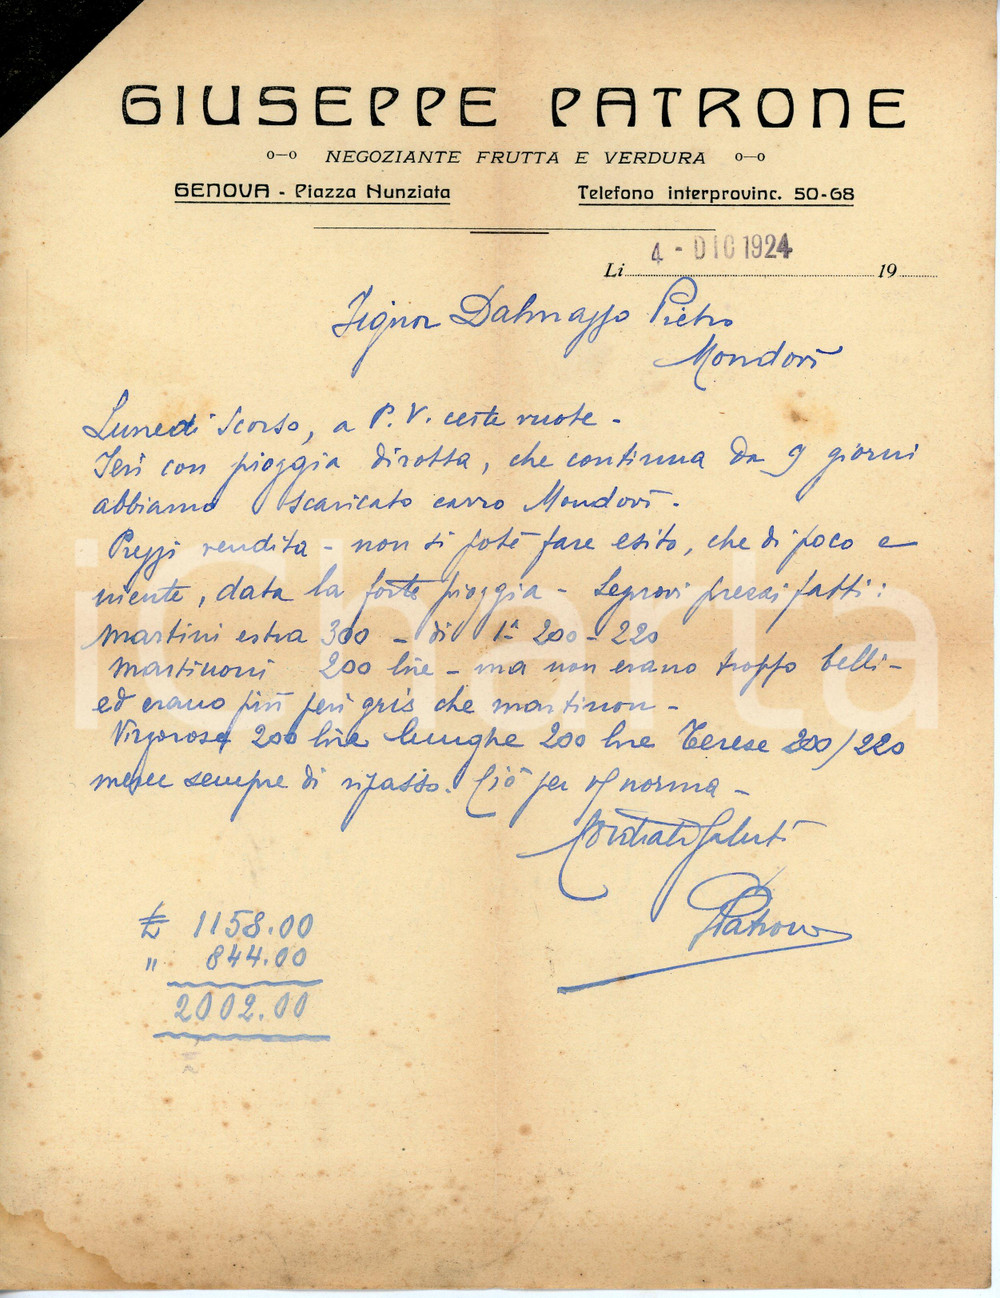 GIUSEPPE PATRONE
NEGOZIANTE FRUTTA E VERDURA
GENOVA - Piazza Nunziata Telefono interprovinc. 50-68
4 - DIC 1924
Li 19
Signor Dalmazzo Pietro
Mondovì
Lunedì scorso, a P. V. ceste vuote -
Ieri con pioggia dirotta, che continua da 9 giorni
abbiamo scaricato carro Mondovì.
Prezzi vendita - non si potè fare esito, che di poco e
niente, data la forte pioggia - Segnovi prezzi fatti:
Martini estra 300 - di 1ª 200-220
Martinoni 200 lire - ma non erano troppo belli -
ed erano più peri gris che martinon -
Virgorose 200 lire lunghe 200 lire Terese 200/220
merce sempre di ripasso. Ciò per norma -
Cordiali Saluti
GPatrone
£ 1158.00
" 844.00
2002.00
iCharta